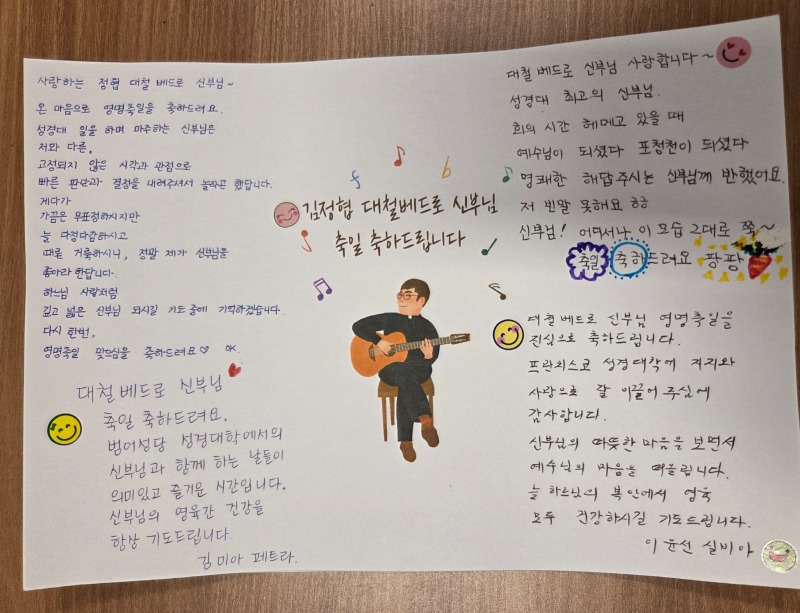 사랑하는 정협 대철 베드로 신부님~
온 마음으로 영명축일을 축하드려요.
성경대 일을 하며 마주하는 신부님은
저와 다른,
고정되지 않은 시각과 관점으로
빠른 판단과 결정을 내려주셔서 놀라곤 했답니다.
게다가
가끔은 무표정하시지만
늘 다정다감하시고
때론 거룩하시니, 정말 제가 신부님을
좋아라 한답니다.
하느님 사랑처럼
깊고 넓은 신부님 되시길 기도 중에 기억하겠습니다.
다시 한번,
영명축일 맞으심을 축하드려요♡ OK
대철 베드로 신부님
축일 축하드려요.
범어성당 성경대학에서의
신부님과 함께 하는 날들이
의미있고 즐거운 시간입니다.
신부님의 영육간 건강을
항상 기도드립니다.
김미아 페트라.
김정협 대철베드로 신부님
축일 축하드립니다
대철 베드로 신부님 사랑합니다~
성경대 최고의 신부님.
회의 시간 헤메고 있을 때
예수님이 되셨다 포청천이 되셨다
명쾌한 해답주시는 신부님께 반했어요.
저 빈말 못해요 ㅎㅎ
신부님! 어디서나 이 모습 그대로 쭉~
축일 축하드려요 팡팡
대철 베드로 신부님 영명축일을
진심으로 축하드립니다.
프란치스코 성경대학에 지지와
사랑으로 잘 이끌어 주심에
감사합니다.
신부님의 따뜻한 마음을 보면서
예수님의 마음을 떠올립니다.
늘 하느님의 복안에서 영육
모두 건강하시길 기도드립니다.
이윤선 실비아